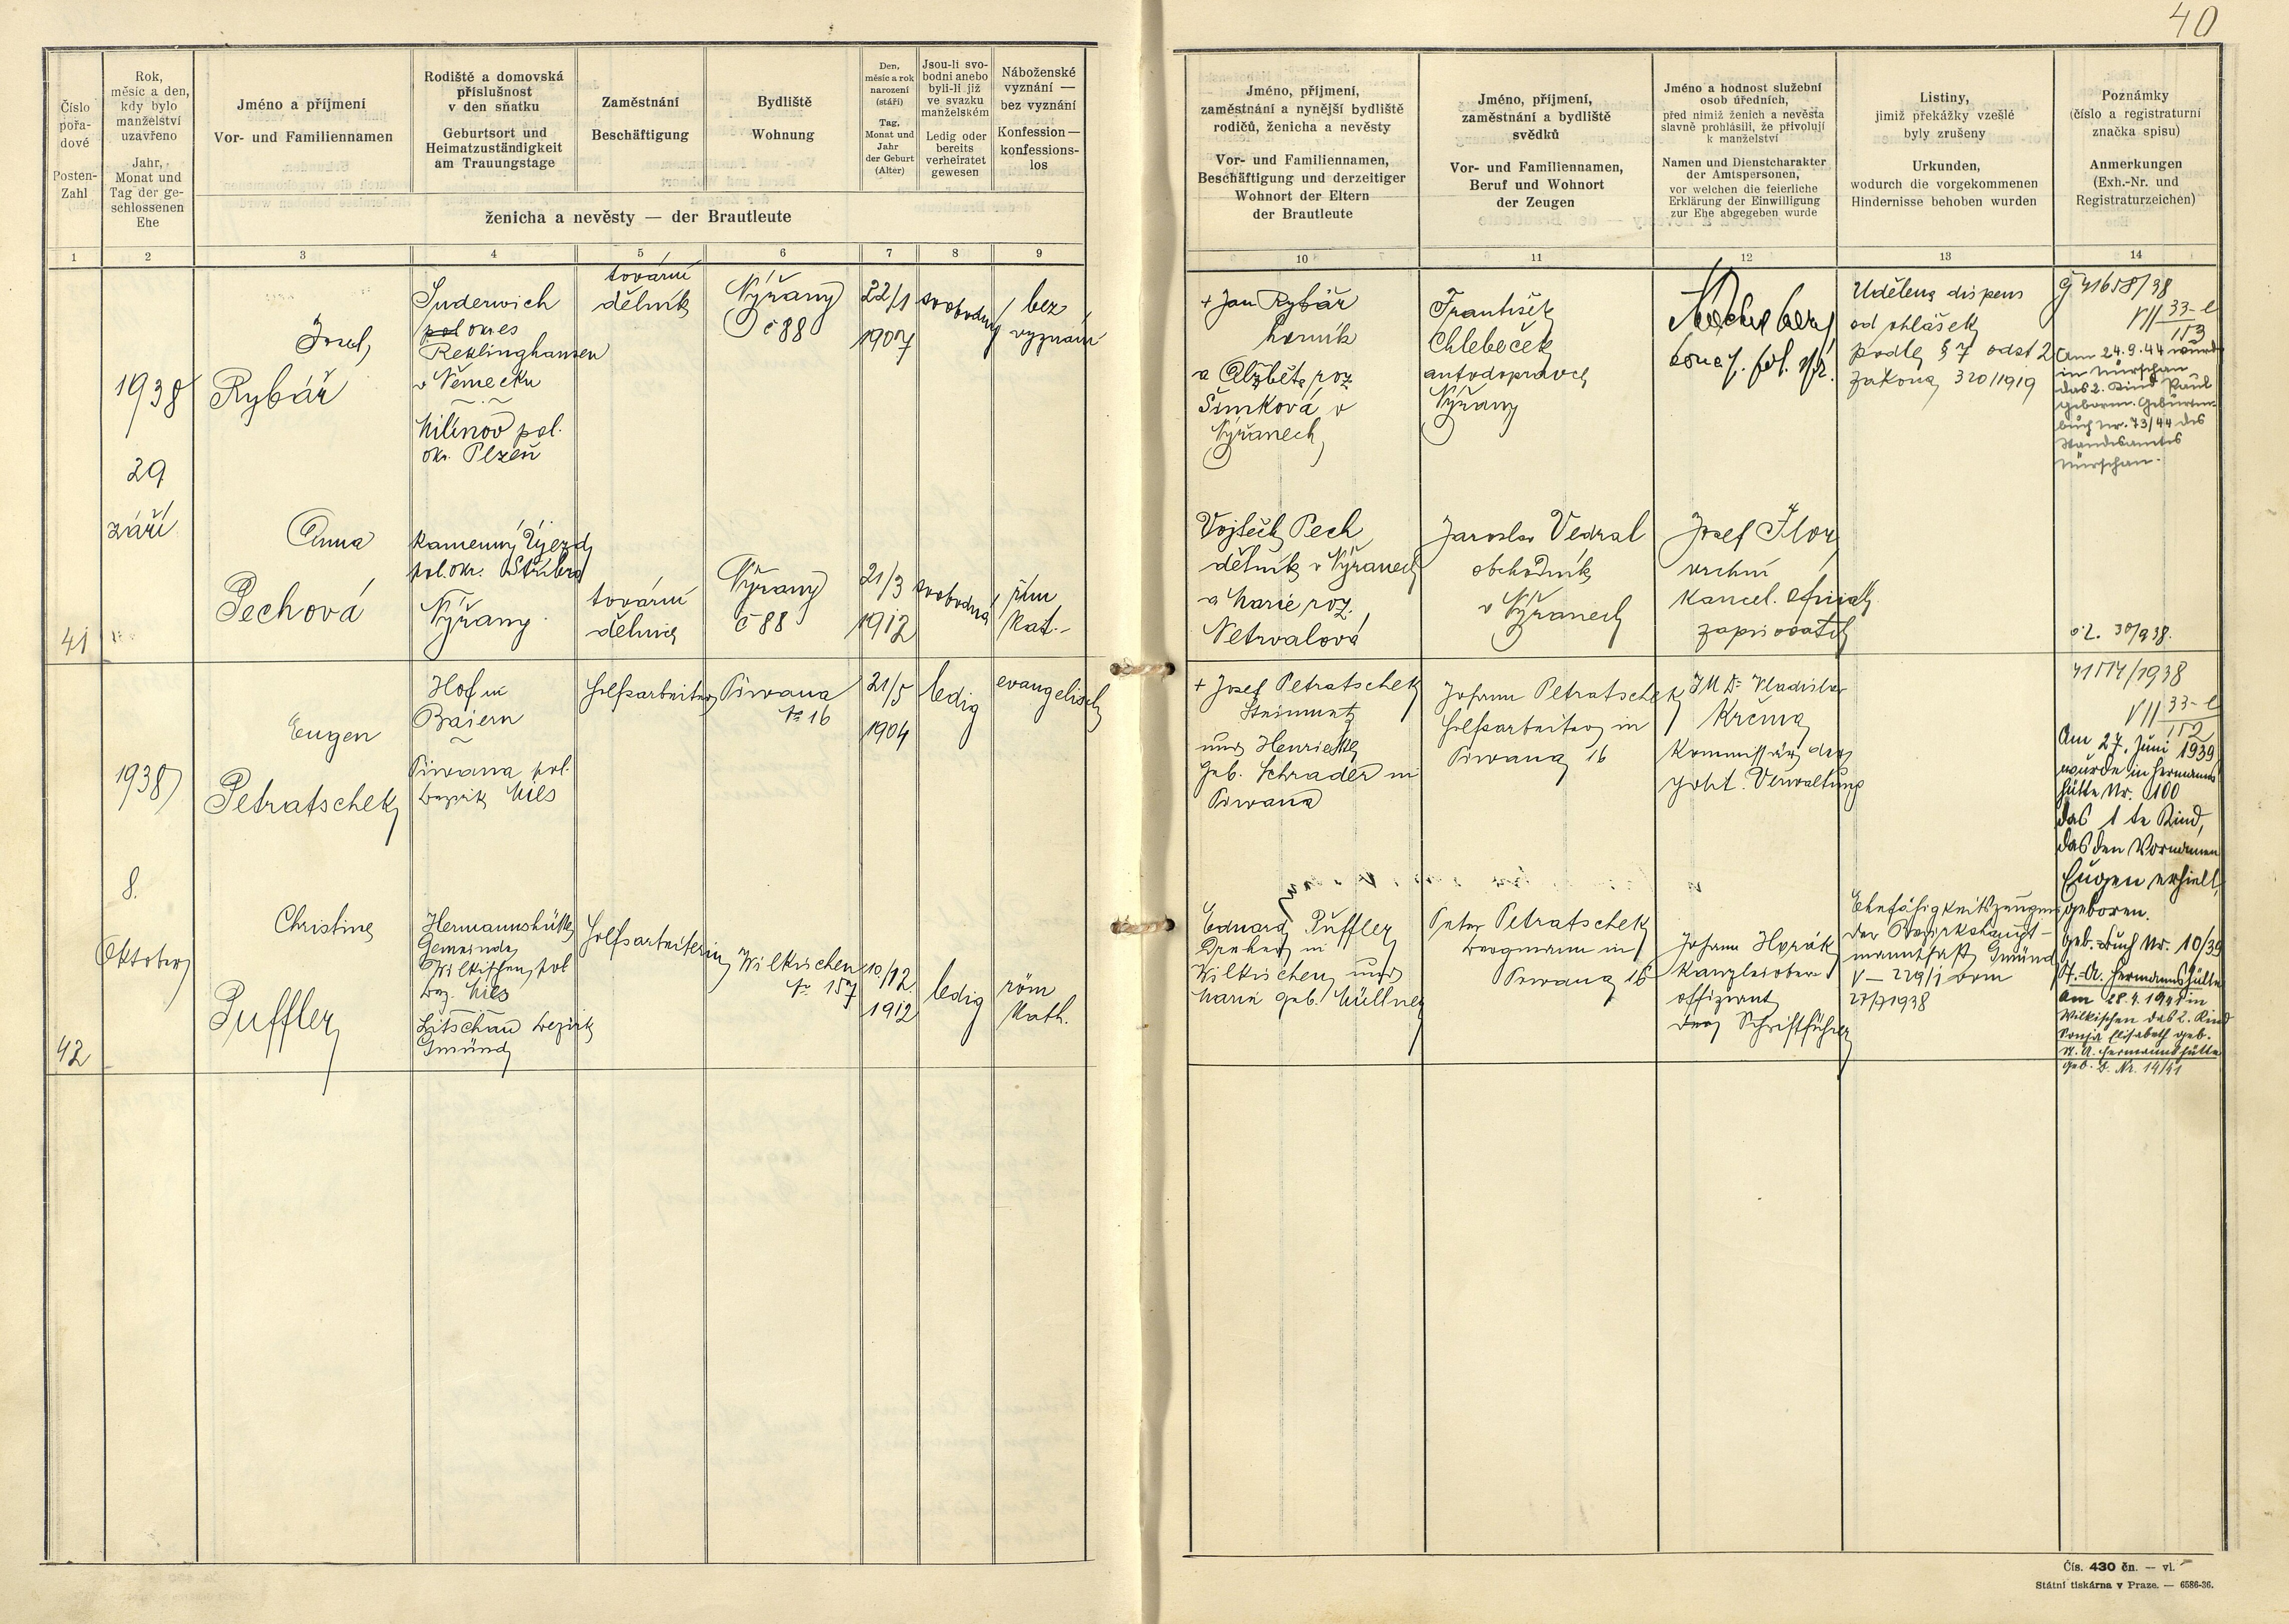 40
Číslo
pořa-
dové
Posten-
Zahl
Rok,
měsíc a den,
kdy bylo
manželství
uzavřeno
Jahr,
Monat und
Tag der ge-
schlossenen
Ehe
Jméno a příjmení
Vor- und Familiennamen
Rodiště a domovská
příslušnost
v den sňatku
Geburtsort und
Heimatzuständigkeit
am Trauungstage
Zaměstnání
Beschäftigung
Bydliště
Wohnung
Den,
měsíc a rok
narození
(stáří)
Tag,
Monat und
Jahr
der Geburt
(Alter)
Jsou-li svo-
bodni anebo
byli-li již
ve svazku
manželském
Ledig oder
bereits
verheiratet
gewesen
Náboženské
vyznání —
bez vyznání
Konfession —
konfessions-
los
ženicha a nevěsty — der Brautleute
Jméno, příjmení,
zaměstnání a nynější bydliště
rodičů, ženicha a nevěsty
Vor- und Familiennamen,
Beschäftigung und derzeitiger
Wohnort der Eltern
der Brautleute
Jméno, příjmení,
zaměstnání a bydliště
svědků
Vor- und Familiennamen,
Beruf und Wohnort
der Zeugen
Jméno a hodnost služební
osob úředních,
před nimiž ženich a nevěsta
slavně prohlásili, že přivolují
k manželství
Namen und Dienstcharakter
der Amtspersonen,
vor welchen die feierliche
Erklärung der Einwilligung
zur Ehe abgegeben wurde
Listiny,
jimiž překážky vzešlé
byly zrušeny
Urkunden,
wodurch die vorgekommenen
Hindernisse behoben wurden
Poznámky
(číslo a registraturní
značka spisu)
Anmerkungen
(Exh.-Nr. und
Registraturzeichen)
1 2 3 4 5 6 7 8 9 10 11 12 13 14
41
1938
29
září
Josef
Rybář
Suderwich
pol okres
Reklinghausen
v Německu
Nilinov pol.
okr. Plzeň
tovární
dělník
Nýřany
č 88
22/1
1907
svobodný
bez
vyznání
+ Jan Rybář
horník
a Alžběta roz.
Šimková v
Nýřanech
František
Chlebeček
autodopravce
Nýřany
Udělena dispens
od ohlášek
podle § 7 odst 2
zákona 320/1919
41658/38
VII 33-e
153
Am 24.9.44 wurde
in Nürschan
das 2. Kind Paul
geboren. Geburten-
buch Nr. 73/44 des
Standesamtes
Nürschan.
Anna
Pechová
Kamenný Újezd
pol. okr. Stříbro
Nýřany
tovární
dělnice
Nýřany
č 88
21/3
1912
svobodná
řím
kat.
Vojtěch Pech
dělník v Nýřanech
a Marie roz.
Netrvalová
Jaroslav Vedral
obchodník
v Nýřanech
Josef Flor
vrchní
kancel. oficiál
zapisovatel
30/9 38.
42
1938
8.
Oktober
Eugen
Petratschek
Hof in
Baiern
Piwana pol.
Bezirk Mies
Hilfsarbeiter
Piwana
Nr 16
21/5
1904
ledig
evangelisch
+ Josef Petratschek
Steinmetz
und Henriette
geb. Schrader in
Piwana
Johann Petratschek
Hilfsarbeiter in
Piwana 16
JUDr Vladislav
Krčma
Kommissär der
polit. Verwaltung
41514/1938
VII 33-e
152
Am 27. Juni 1939
wurde in Hermanns
hütte Nr. 100
das 1 te Kind,
das den Vornamen
Eugen erhielt,
geboren.
geb.-Buch Nr. 10/39
St.-A. Hermannshütte
Am 28.4.1941 in
Wilkischen das 2. Kind
Sonja Elisabeth geb.
St. A. Hermannshütte
Geb. B. Nr. 14/41
Christine
Puffler
Hermannshütte
Gemeinde
Wilkischen pol
Bez. Mies
Litschau Bezirk
Gmünd
Hilfsarbeiterin
Wilkischen
Nr 157
10./12
1912
ledig
röm
Kath.
Eduard Puffler
Dreher in
Wilkischen und
Marie geb. Müllner
Peter Petratschek
Bergmann in
Piwana 16
Johann Horák
Kanzleiober
offiziant
der Schriftführer
Ehefähigkeitszeugnis
der Bezirkshaupt-
mannschaft Gmünd
V — 229/1 vom
27/7 1938
Čís. 430 čn. — vl.
Státní tiskárna v Praze. — 6586-36.